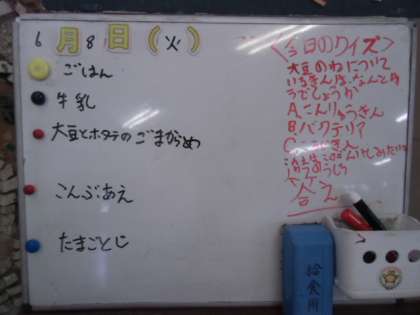 6月8日(火)
ごはん
牛乳
大豆とホタテのごまがらめ
こんぶあえ
たまごとじ
<今日のクイズ>
大豆のねについて
いるきんは、なんとゆ
うでしょうか
A.こんりゅうきん
B.バクテリア
C.
答え
給食用